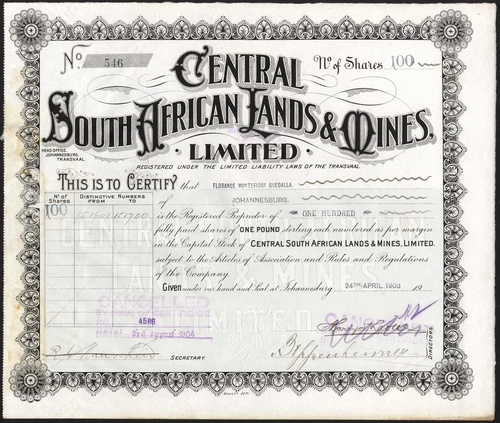 No. 546
No. of Shares 100
CENTRAL
SOUTH AFRICAN LANDS & MINES,
LIMITED
HEAD OFFICE,
JOHANNESBURG,
TRANSVAAL
REGISTERED UNDER THE LIMITED LIABILITY LAWS OF THE TRANSVAAL
THIS IS TO CERTIFY that FLORANCE MONTEFIORE GUEDALLA.
of JOHANNESBURG.
No. OF SHARES
DISTINCTIVE NUMBERS
FROM TO
100
is the Registered Proprietor of ONE HUNDRED
fully paid shares of ONE POUND sterling each, numbered as per margin
in the Capital Stock of CENTRAL SOUTH AFRICAN LANDS & MINES, LIMITED,
subject to the Articles of Association and Rules and Regulations
of the Company.
Given under our Hand and Seal at Johannesburg 24TH APRIL 1903 19
CANCELLED
4586
DATE
SECRETARY.
DIRECTORS.